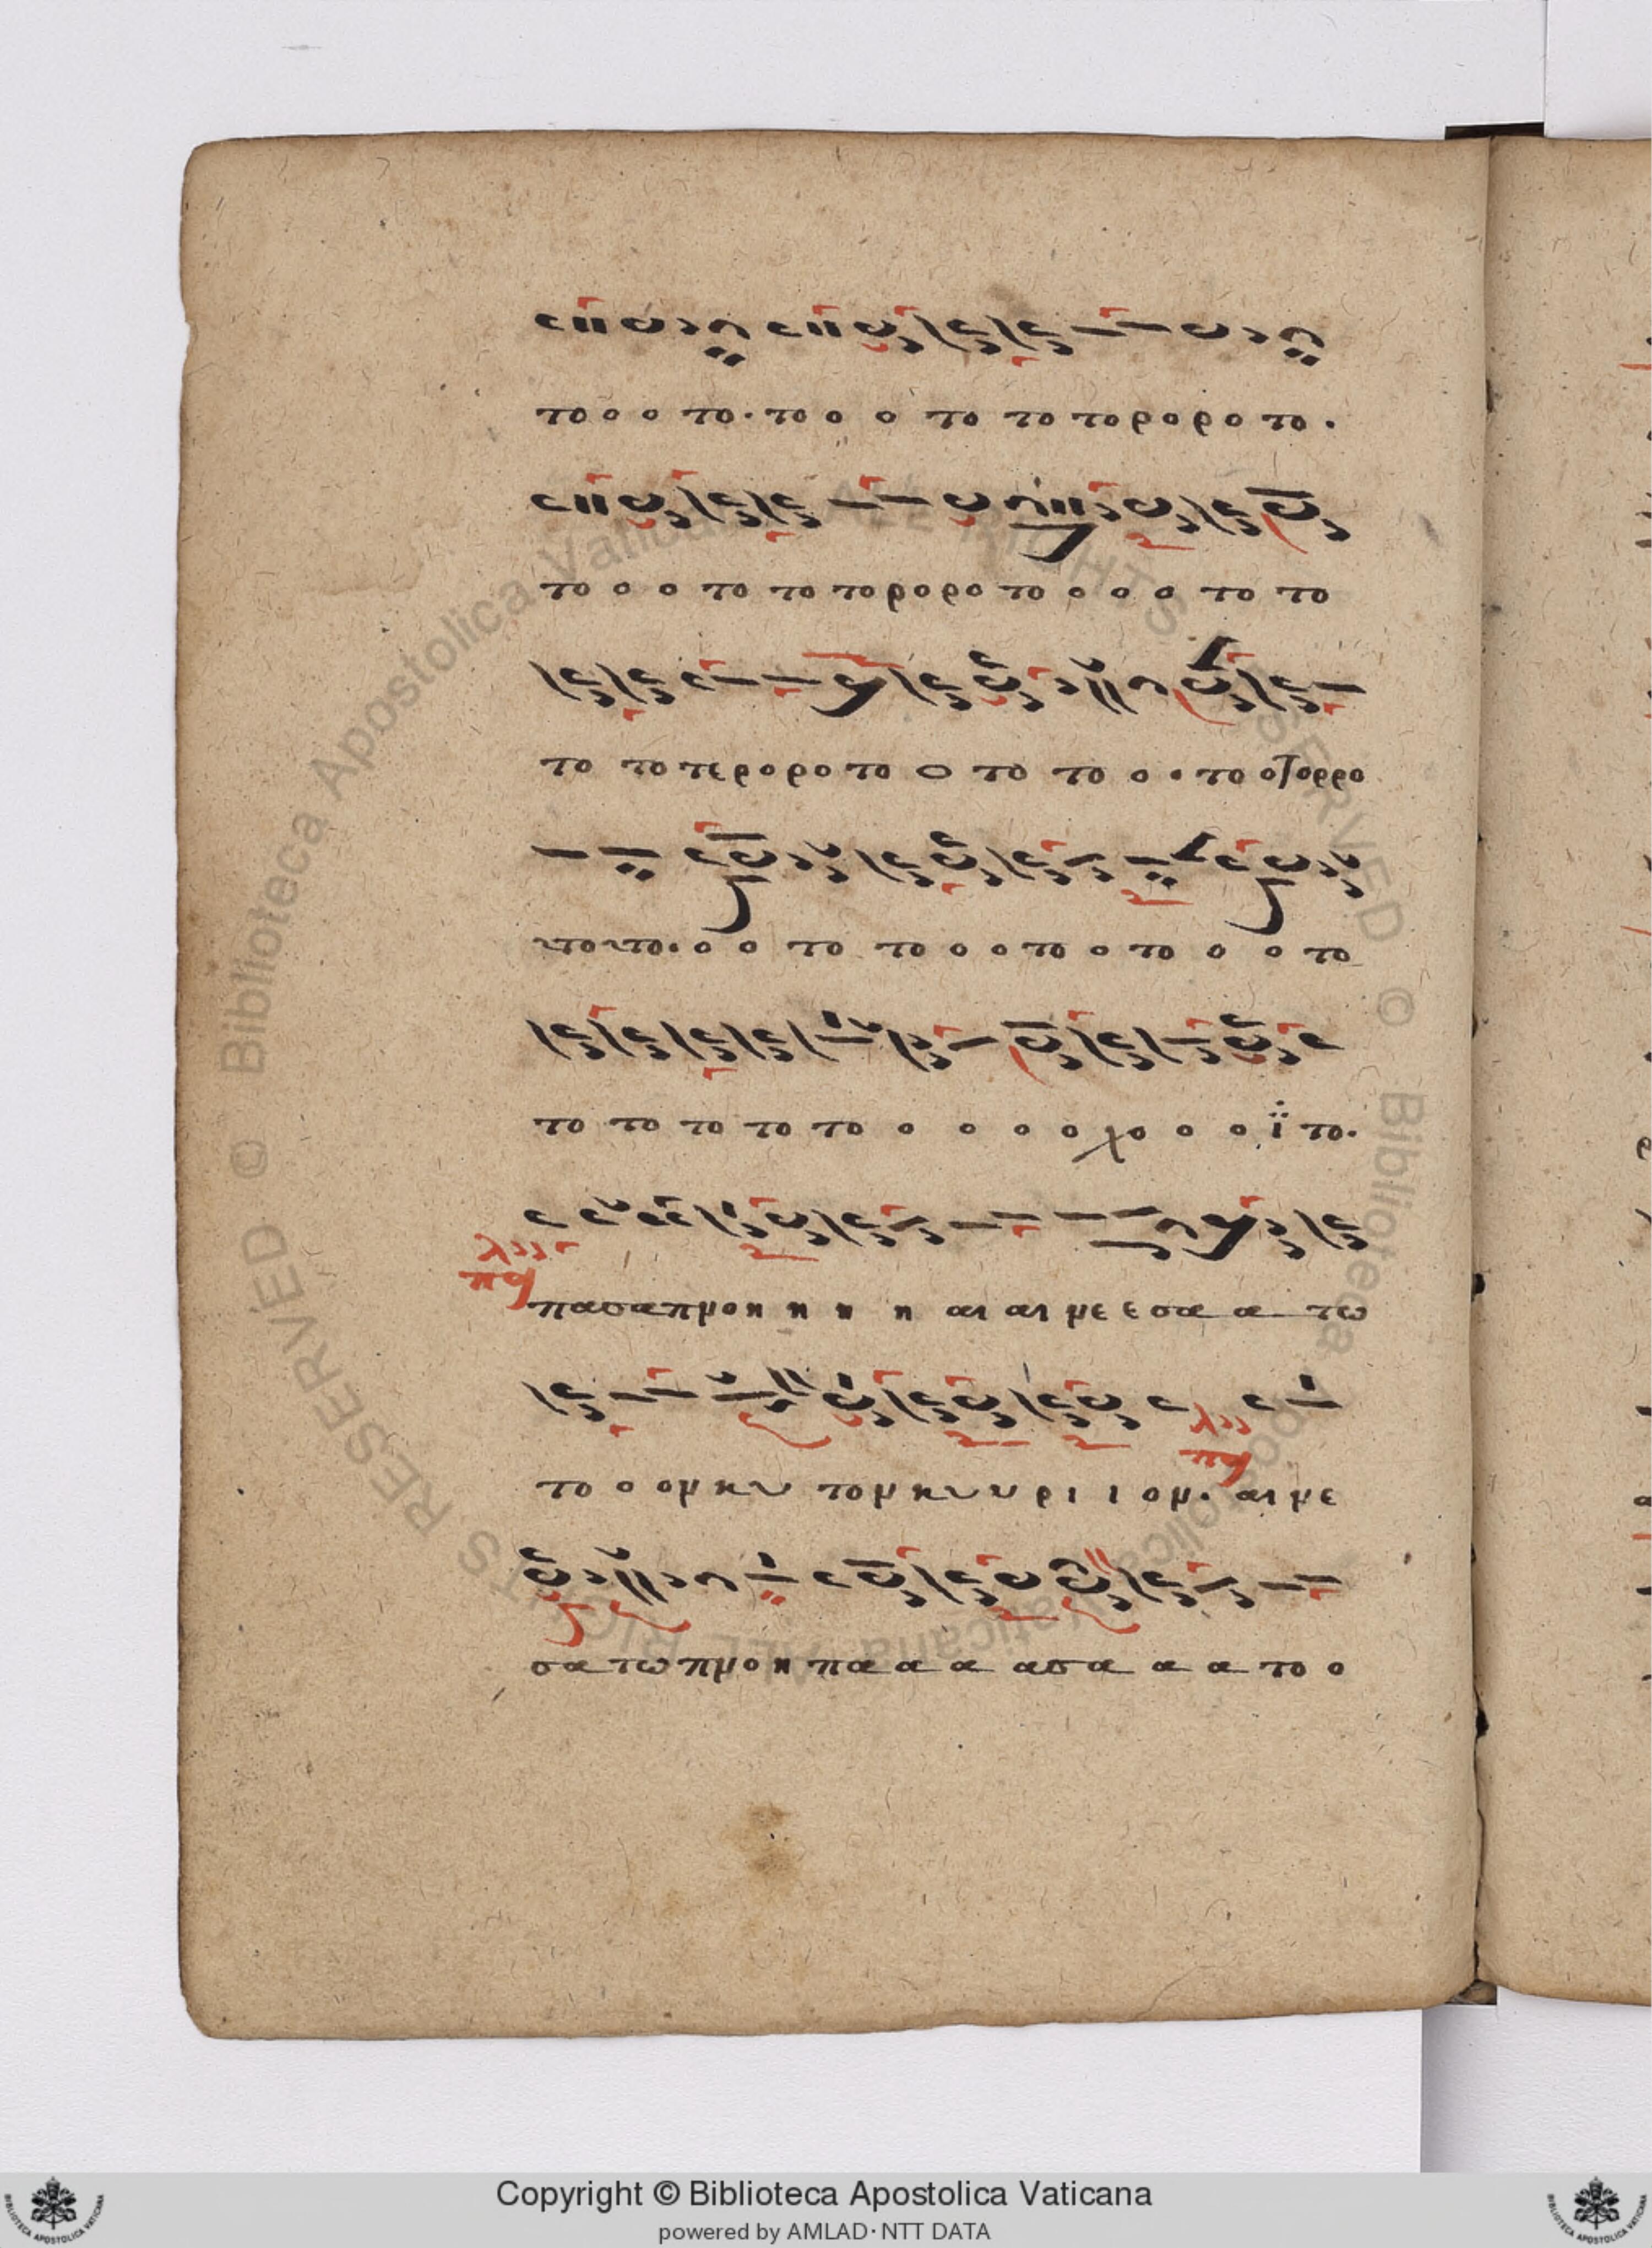 το ο ο το. το ο ο το το το ρο ρο το.
το ο ο το το το ρο ρο το ο ο ο το το
το το τε ρο ρο το ο το το ο ο το
το το. ο ο το το ο ο το ο το ο ο το
το το το το το ο ο ο ο χο ο ο ο ϊ το.
πασαπμοη η η η αι αι με ε σα α τω
το ο ομ κυ το μ κυ υ ρι ι ομ. αι με
σα τω πμοη πα α α α σα α α το ο
Copyright © Biblioteca Apostolica Vaticana
powered by AMLAD·NTT DATA